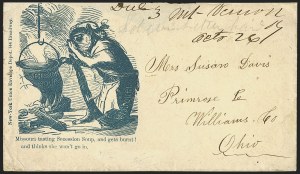 Due 3 Mt Vernon
Octo 26
Miss Susan Davis
Primrose
Williams. Co
Ohio
New-York Union Envelope Depot, 144 Broadway.
Missouri tasting Secession Soup, and gets burnt!
and thinks she won't go in.